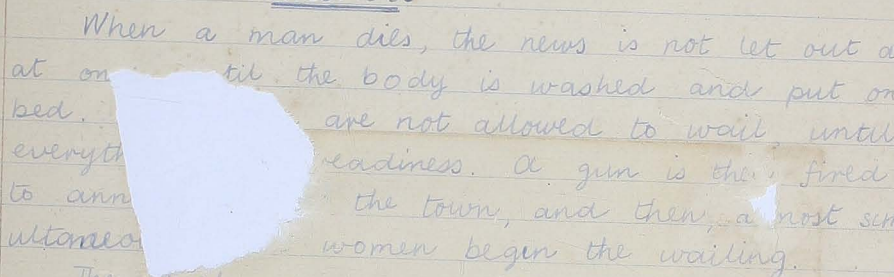 When a man dies, the news is not let out a
at on til the body is washed and put on
bed. are not allowed to wail, until
everyth readiness. A gun is the fired
to ann the town, and then, a most sim
ultaneo women begin the wailing.